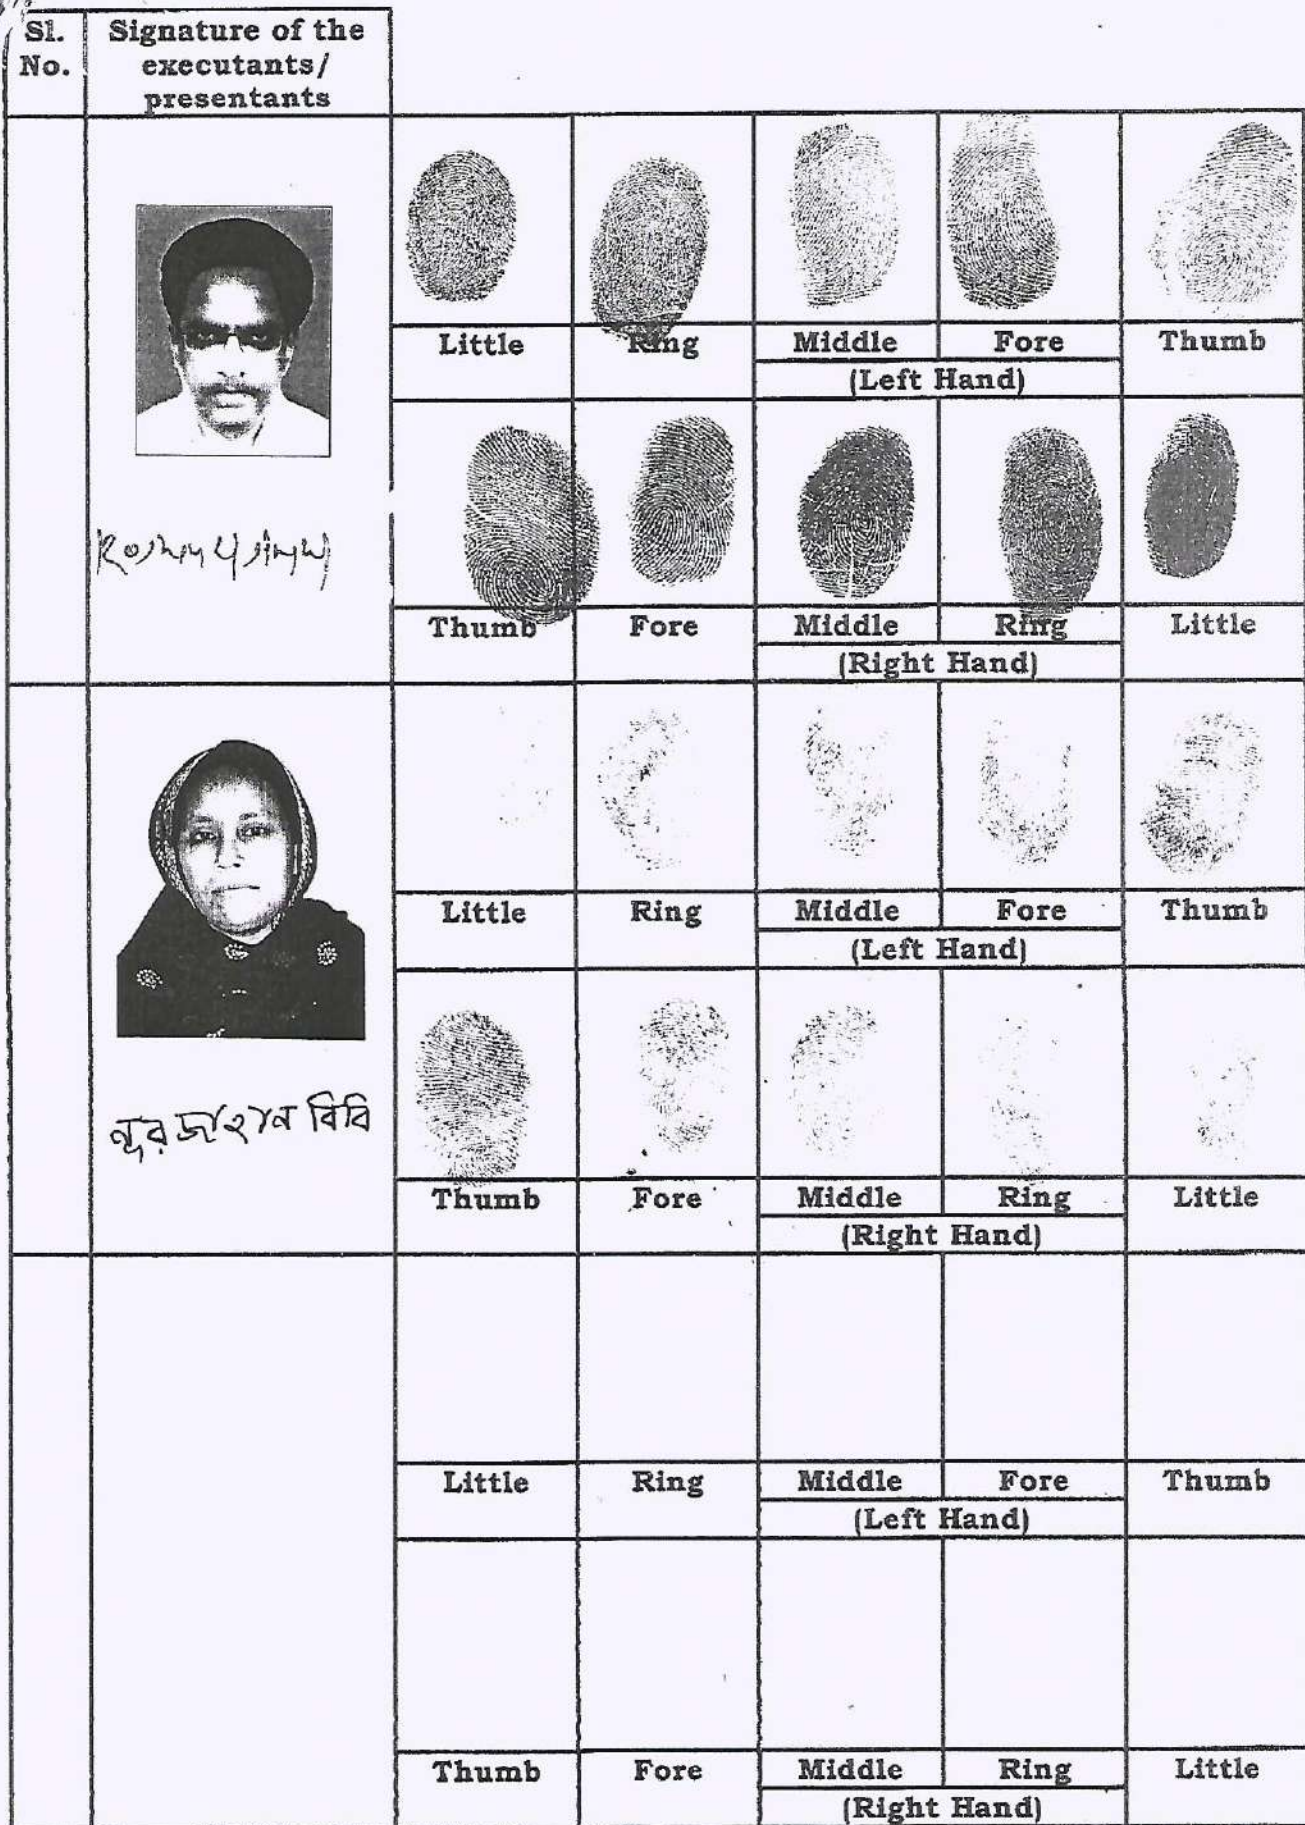 Sl.
No.
Signature of the
executants/
presentants
Little Ring Middle Fore Thumb
(Left Hand)
Thumb Fore Middle Ring Little
(Right Hand)
Little Ring Middle Fore Thumb
(Left Hand)
নূরজাহান বিবি
Thumb Fore Middle Ring Little
(Right Hand)
Little Ring Middle Fore Thumb
(Left Hand)
Thumb Fore Middle Ring Little
(Right Hand)